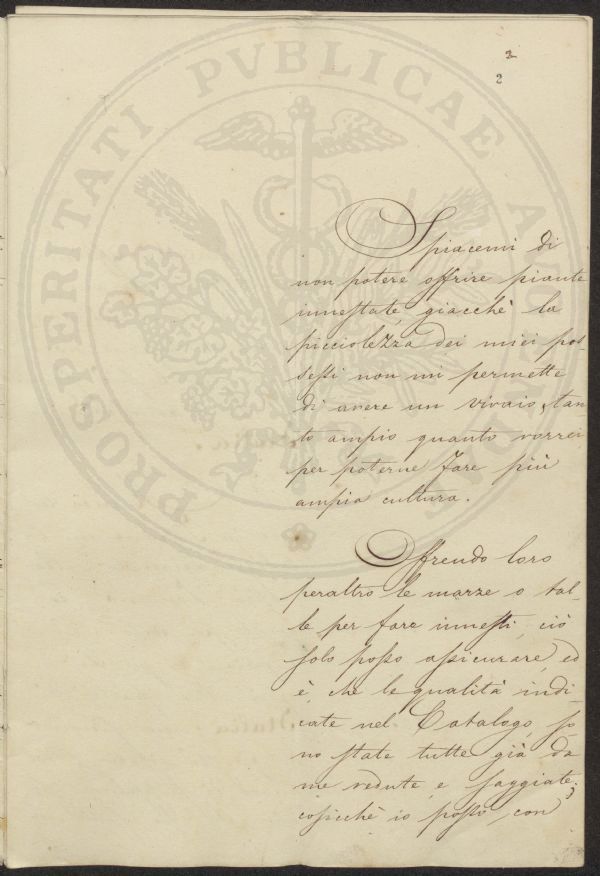 2
2
PROSPERITATI PVBLICAE AVGENDAE
Spiacemi di
non potere offrire piante
innestate, giacchè la
picciolezza dei miei pos-
sessi non mi permette
di avere un vivaio, tan
to ampio quanto vorrei
per poterne fare più
ampia cultura.
Offrendo loro
peraltro le marze o tal-
le per fare innesti, ciò
solo posso assicurare, ed
è, che le qualità indi-
cate nel Catalogo, so-
no state tutte già da
me vedute, e saggiate;
cosicchè io posso, con